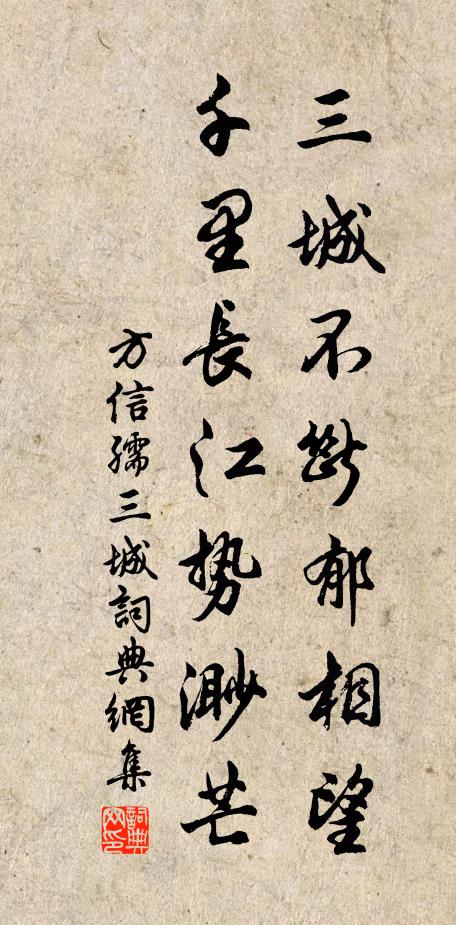 三城不断郁相望
千里長江势渺芒
方信孺三城詞典網集
詞典网印